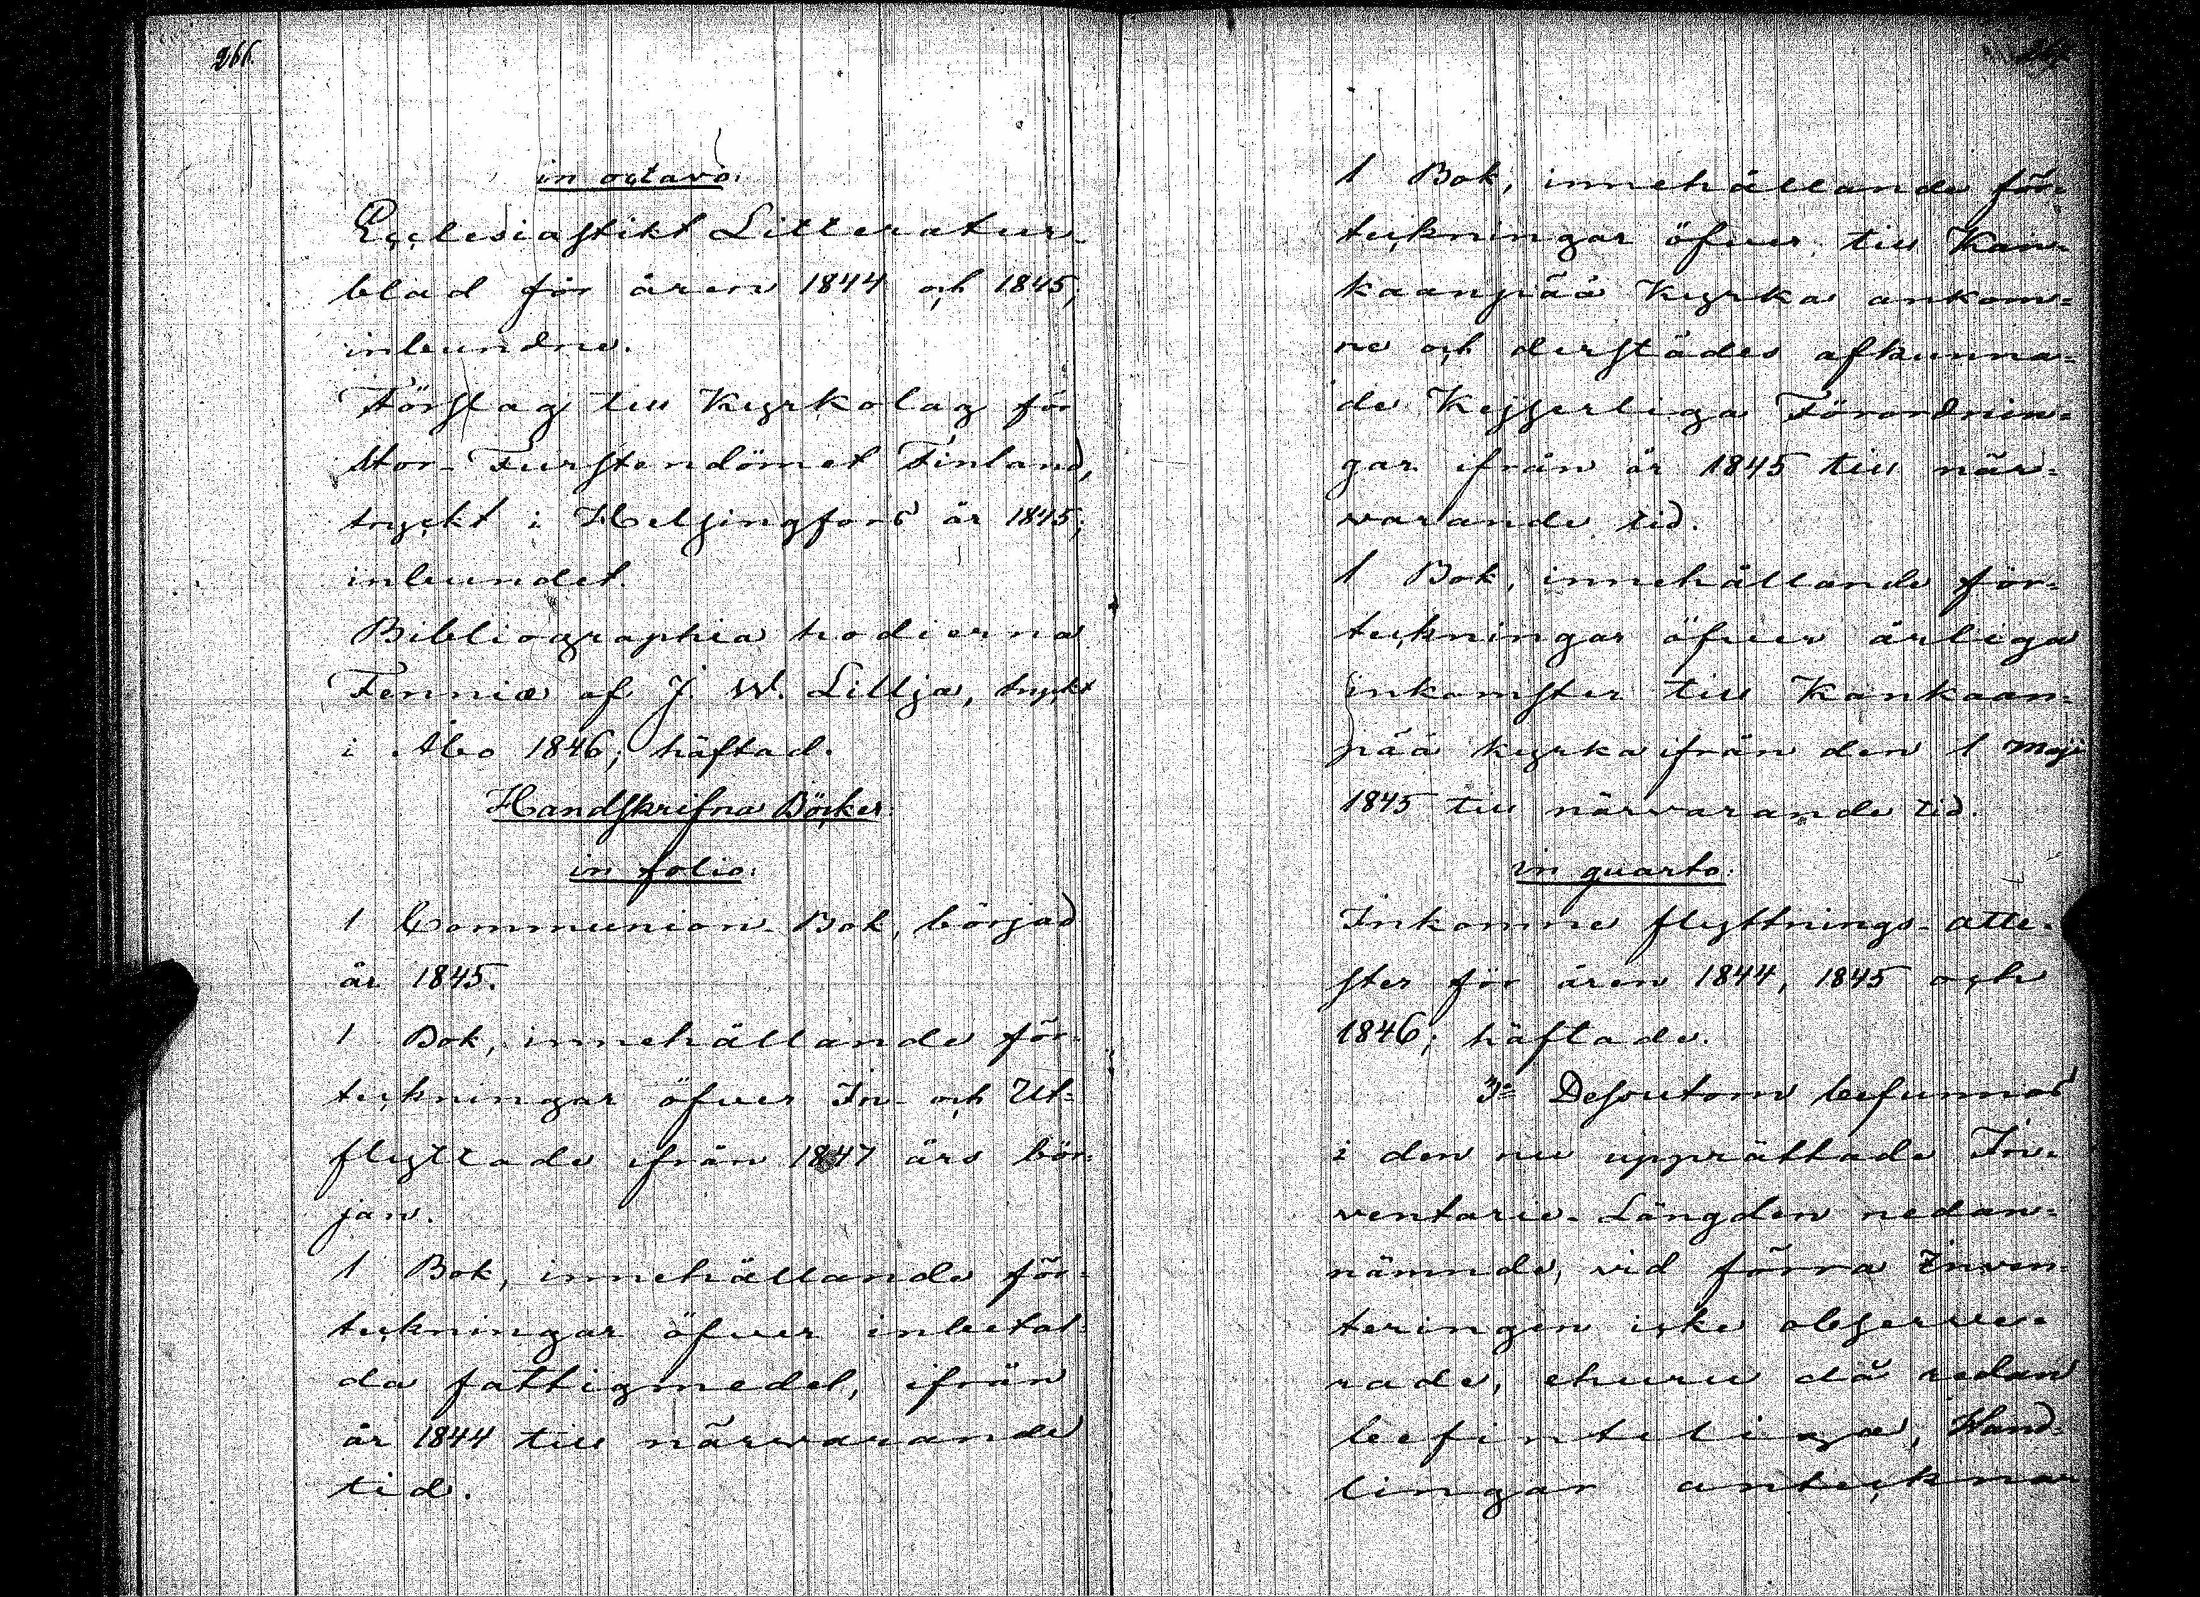 266.
in octavo:
Ecclesiastikt Litteratur-
blad för åren 1844 och 1845;
inbundne.
Förslag till Kyrkolag för
Stor-Furstendömet Finland,
tryckt i Helsingfors år 1845;
inbundet.
Bibliographia hodierna
Fenniæ af J. W. Lillja, tryckt
i Åbo 1846; häftad.
Handskrifna Böcker:
in folio:
1 Communion-Bok, börjad
år 1845.
1 Bok, innehållande för-
teckningar öfver In- och Ut-
flyttade ifrån 1847 års bör-
jan.
1 Bok, innehållande för-
teckningar öfver inbetal-
da fattigmedel, ifrån
år 1844 till närwarande
tid.
1 Bok, innehållande för-
teckningar öfver till Kan-
kaanpää Kyrka ankom-
ne och derstädes afkunna-
de Kejserliga Förordnin-
gar ifrån år 1845 till när-
warande tid.
1 Bok, innehållande för-
teckningar öfver årliga
inkomster till Kankaan-
pää kyrka ifrån den 1 Maji
1845 till närvarande tid.
in quarto:
Inkomne flyttnings-atte-
ster för åren 1844, 1845 och
1846; häftade.
3o Dessutom befunnos
i den nu upprättade In-
ventarie-Längden nedan-
nämnde, vid förra Inven-
teringen icke observe-
rade, ehuru då redan
befinteliga, Hand-
lingar anteckna-